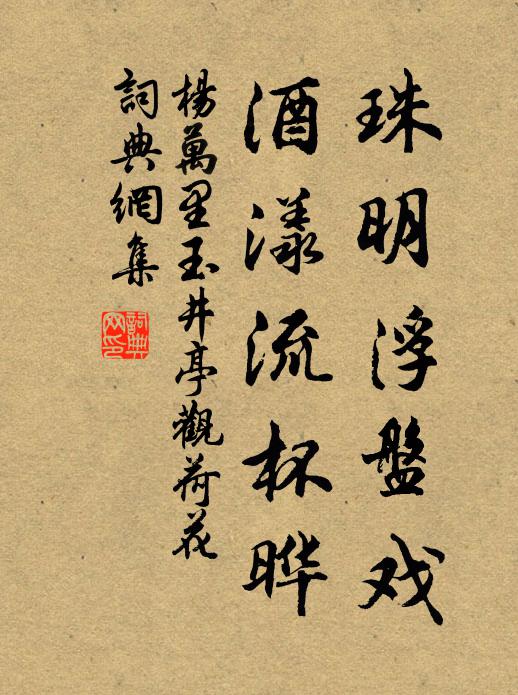 珠明浮盤戏
酒漾流杯晔
楊萬里玉井亭觀荷花
詞典網集
詞典网印